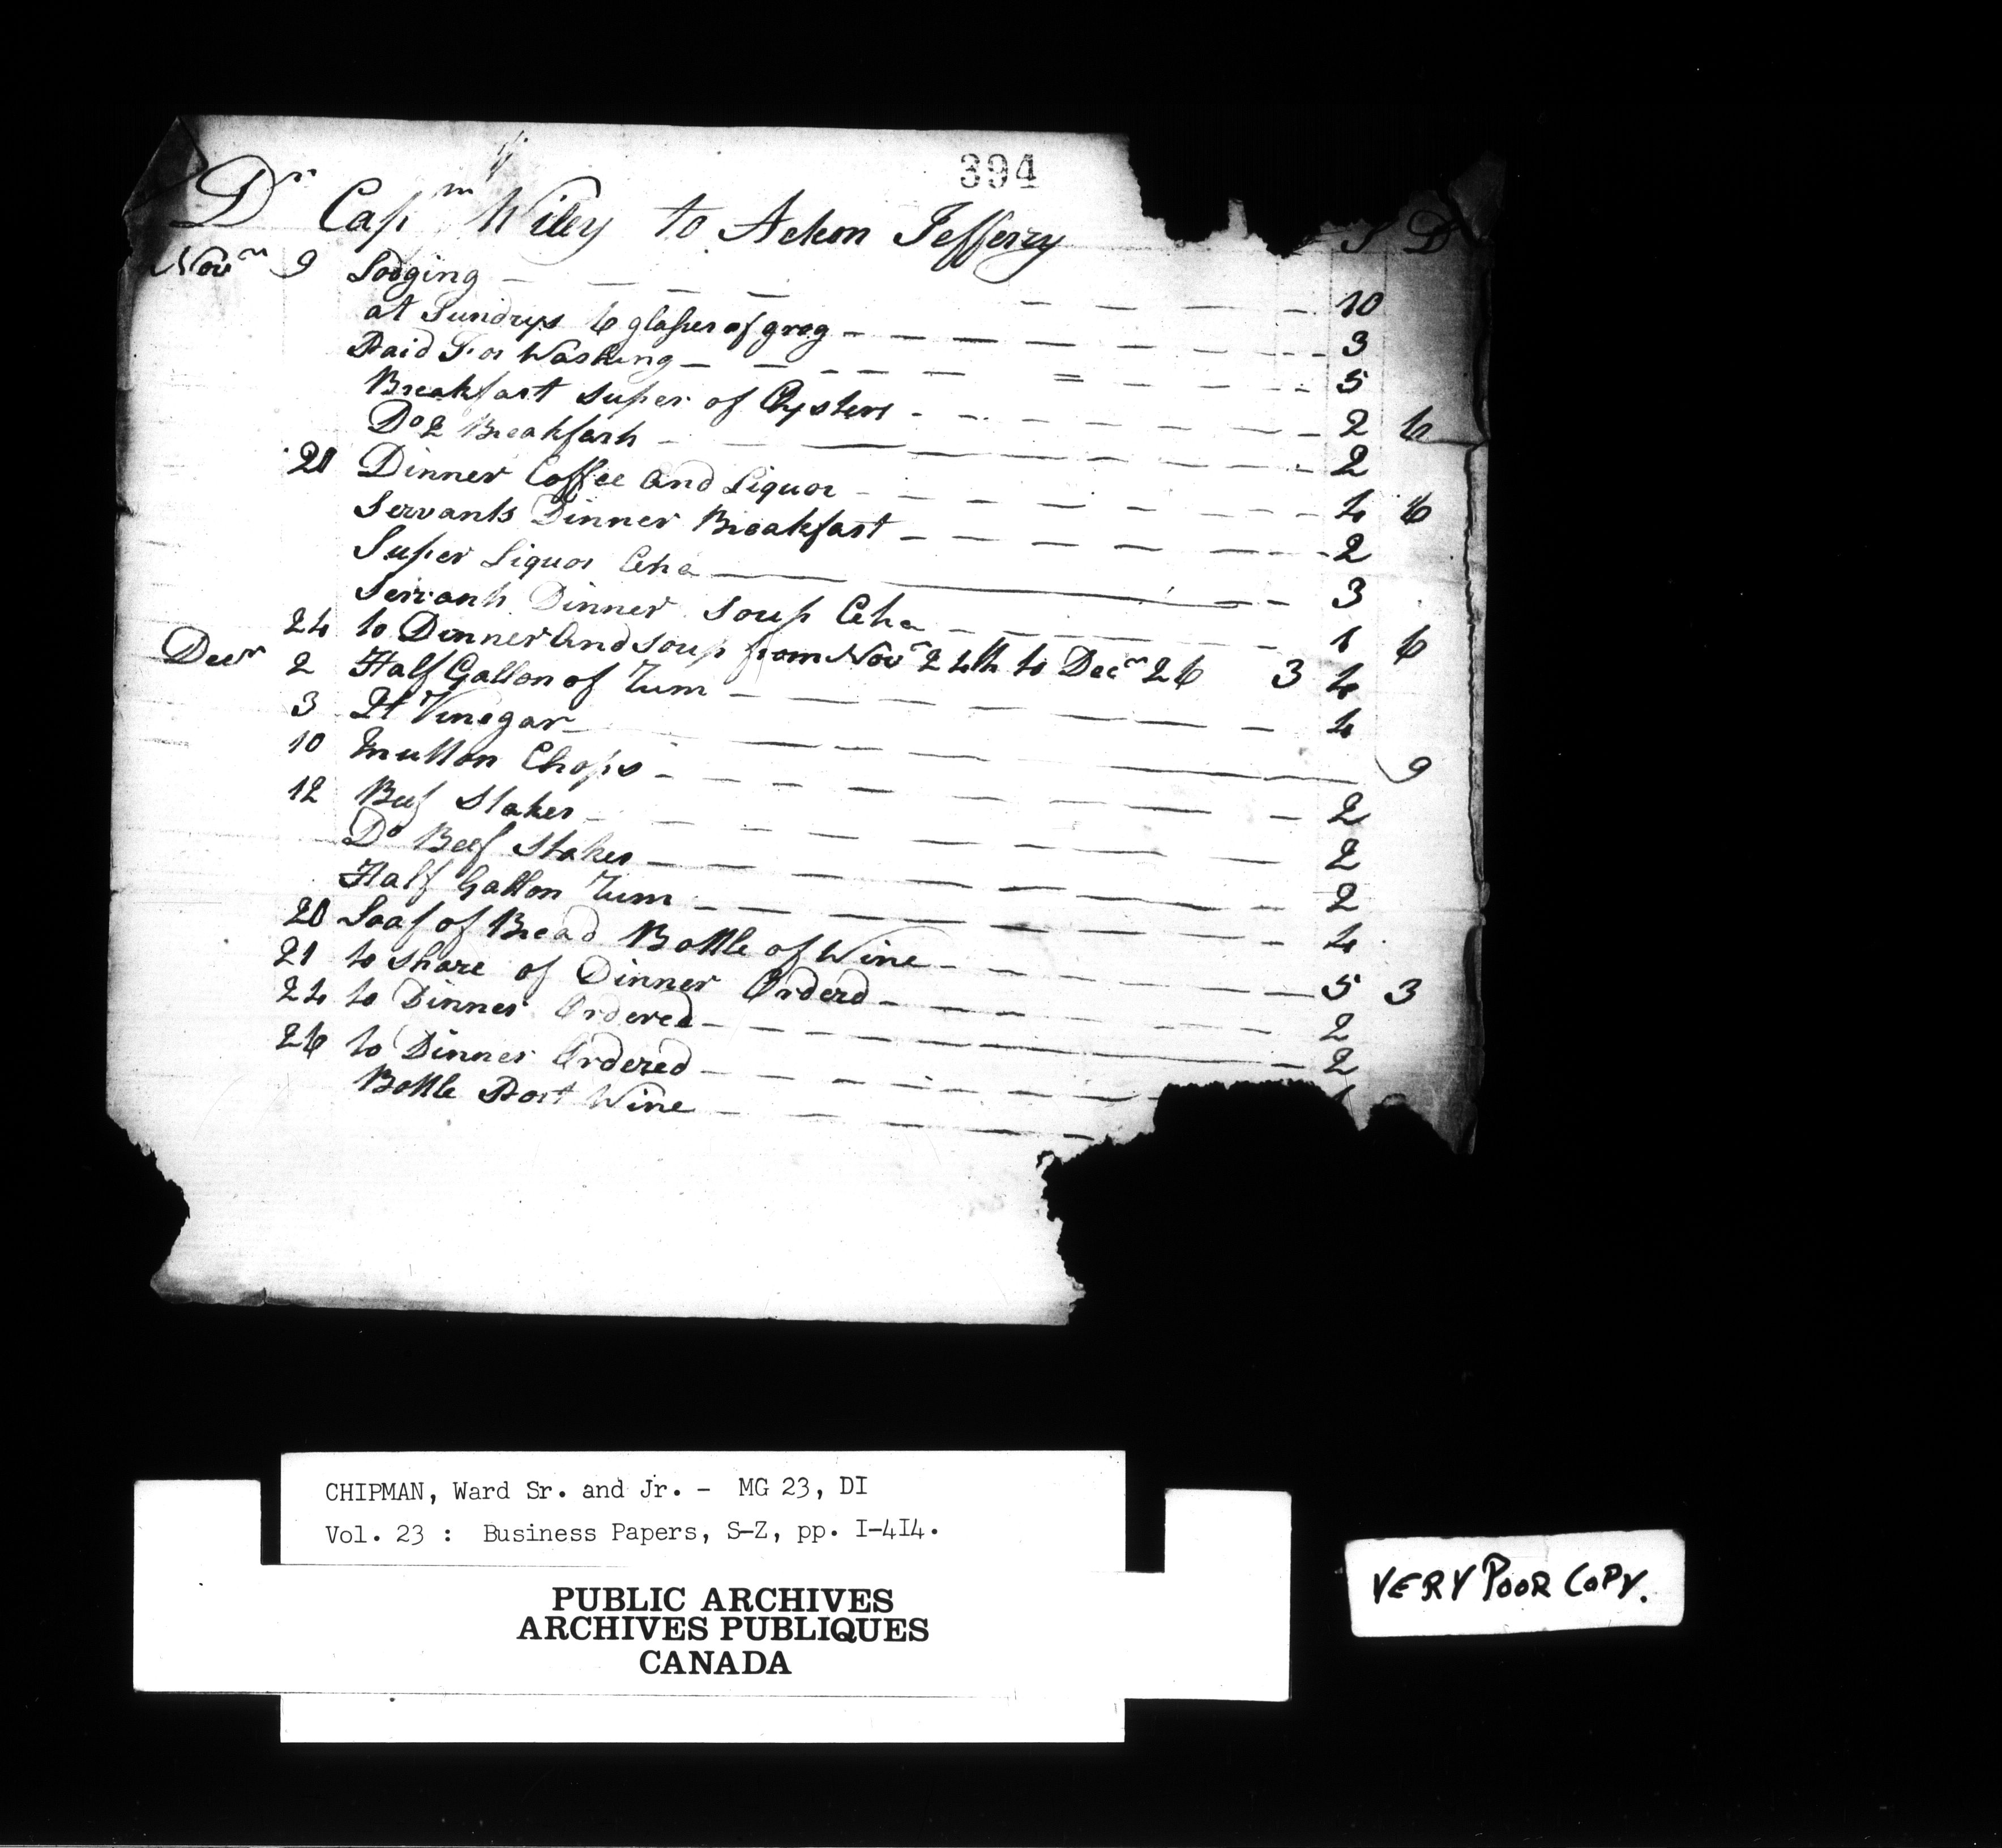 394
Dr Capm Wiley to Acken Jefferry S D
Novr 9 Lodging — — — — 10
at Sundrys 6 glasses of grog — — — 3
Paid For Washing — — — 5
Breakfast Super of Oysters — — — 2 6
Do 2 Breakfash — — — 2
21 Dinner Coffee And Liquor — — — 4 6
Servants Dinner Breakfast — — — 2
Super Liquor Ceha — — — 3
Servants Dinner Soup Ceha — — — 1 6
24 to Dinner And soup from Novr 24th to Decr 26 3 4
Decr 2 Half Gallon of Rum — — — 4
3 Qt Vinegar — — — 9
10 Mutton Chops — — — 2
12 Beef Stakes — — — 2
Do Beef Stakes — — — 2
Half Gallon Rum — — — 4
20 Loaf of Bread Bottle of Wine — — — 5 3
21 to Share of Dinner Orderd — — — 2
24 to Dinner Ordered — — — 2
26 to Dinner Ordered — — —
Bottle Port Wine — — —
CHIPMAN, Ward Sr. and Jr. - MG 23, DI
Vol. 23 : Business Papers, S-Z, pp. I-4I4.
PUBLIC ARCHIVES
ARCHIVES PUBLIQUES
CANADA
VERY POOR COPY.